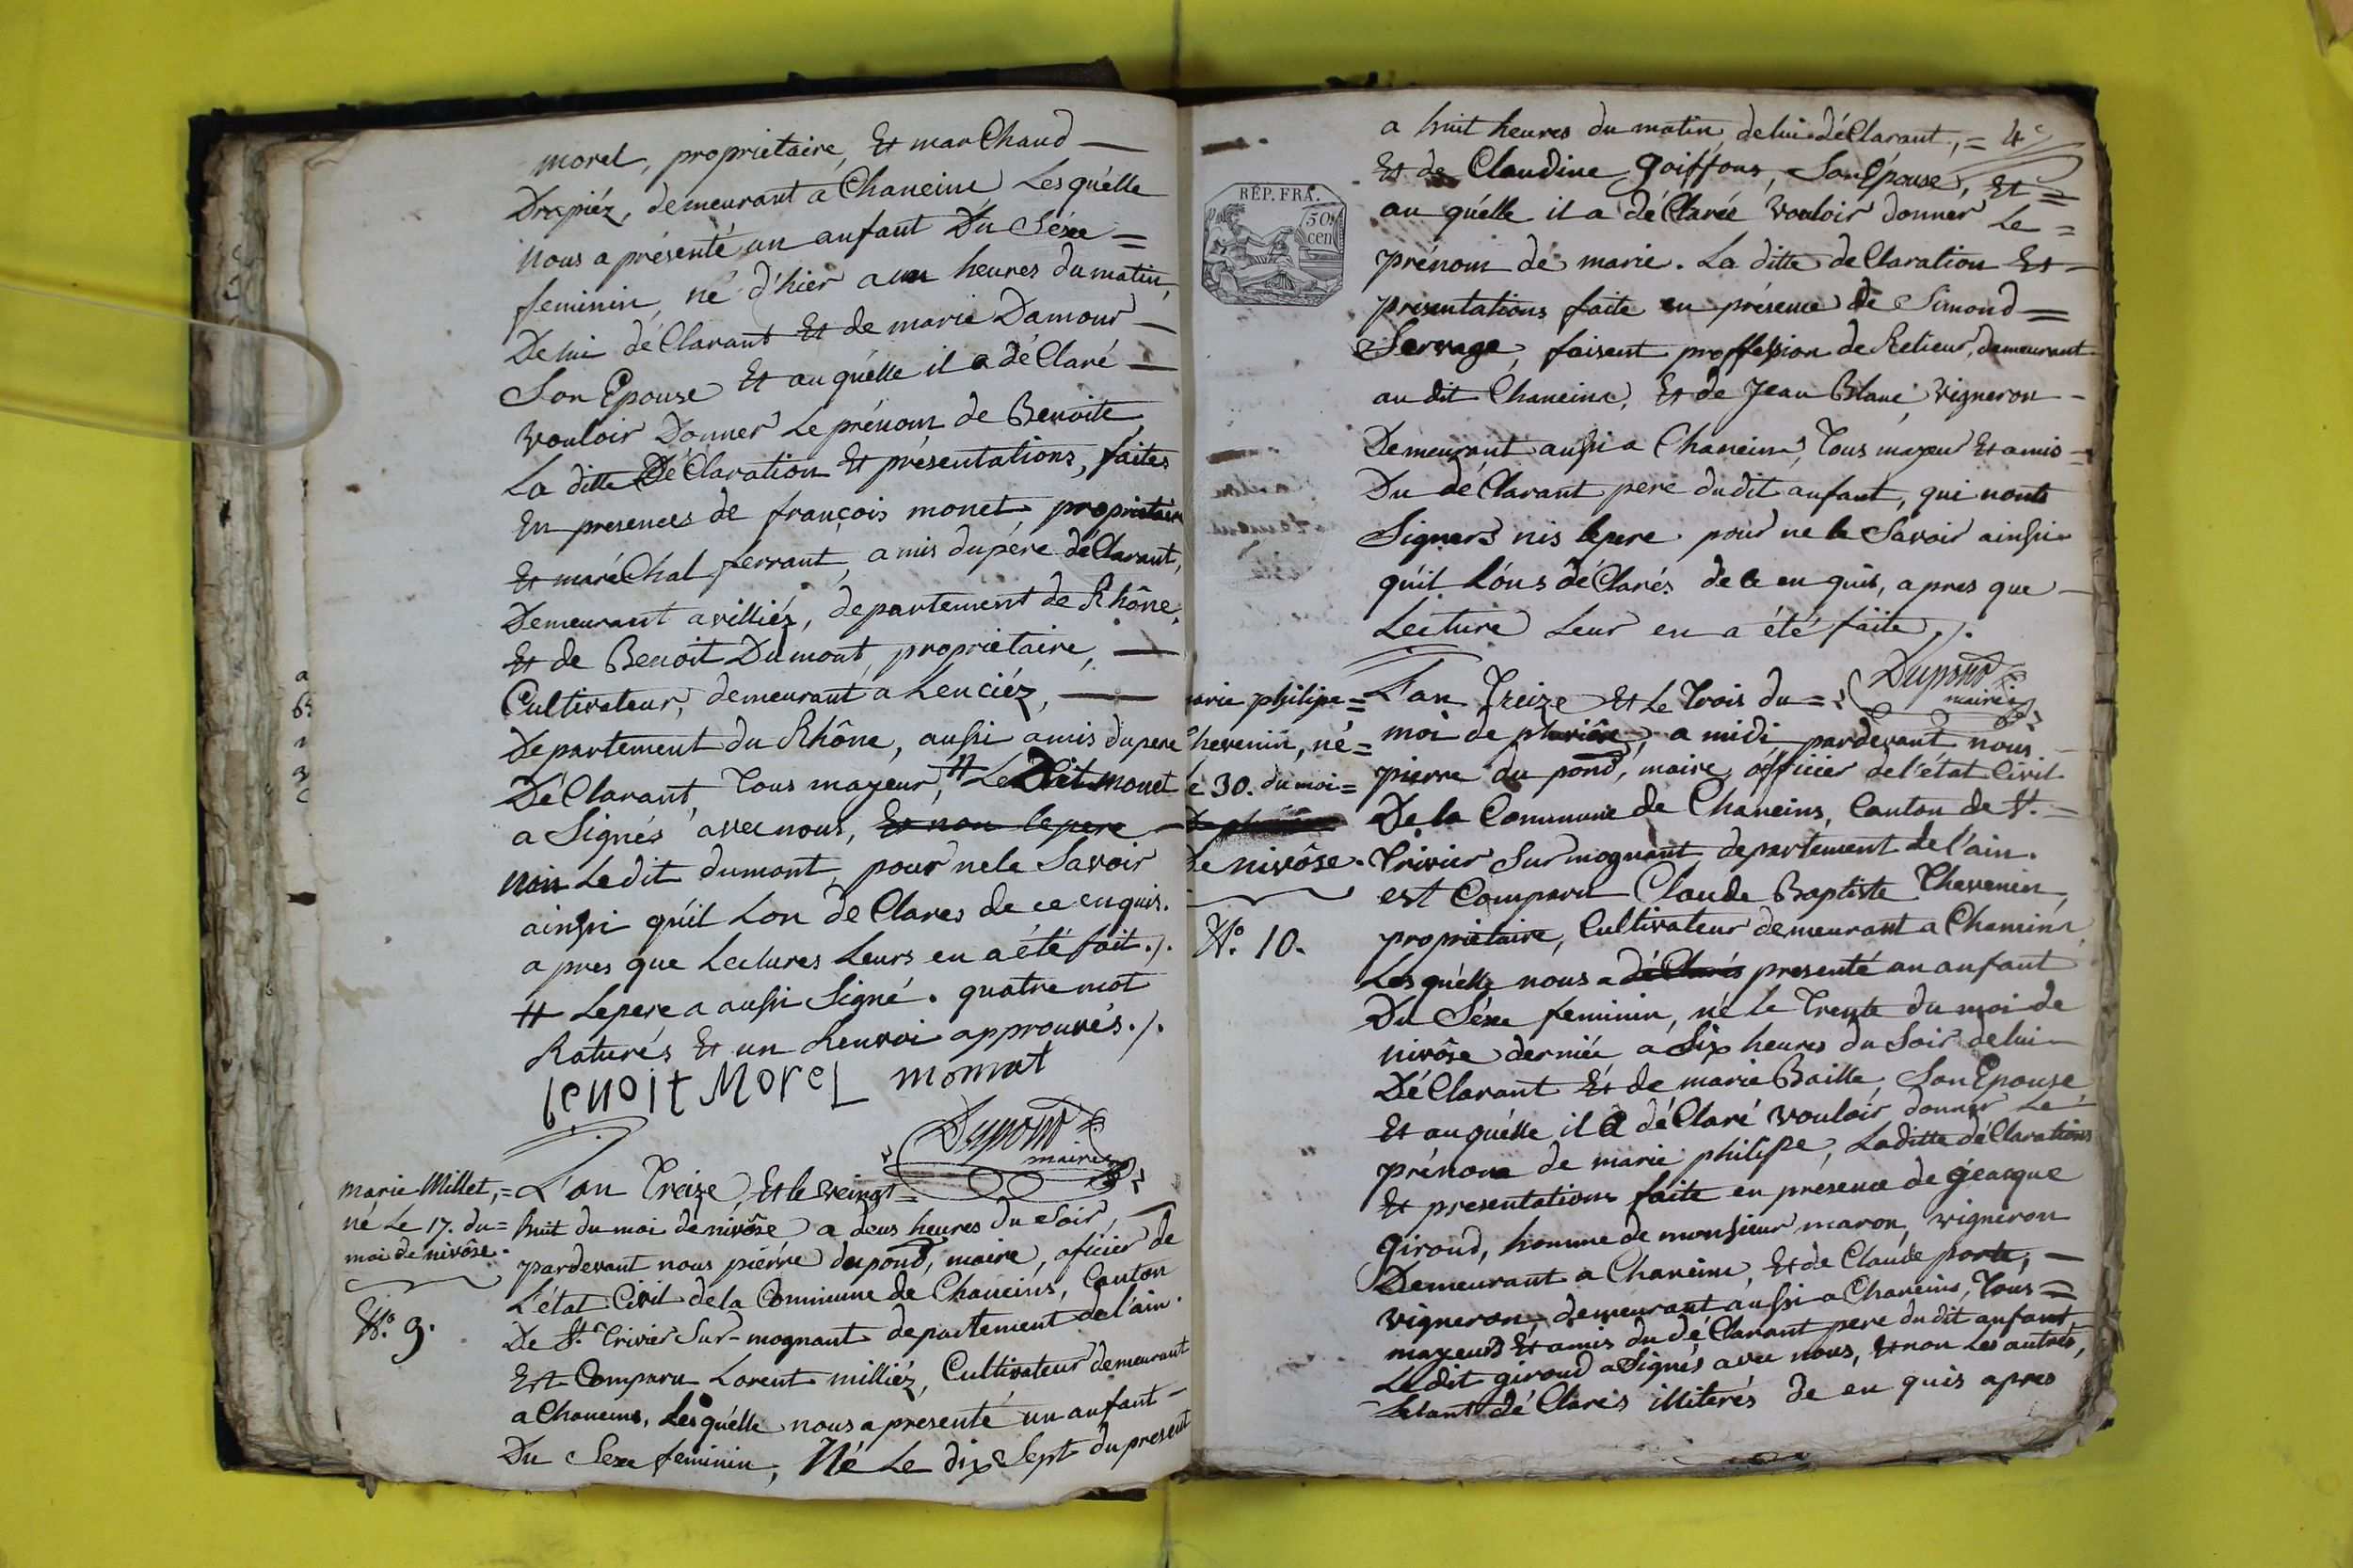 morel, proprietaire, Et marChand —
Drapiéz, demeurant a Chaneins Lesquélle
nous a présenté un anfant Du Séxe =
feminin, né d'hier a heures du matin,
De lui déClarant Et de marie Damour —
Son Epouse Et auquélle il a déClaré —
vouloir Donner Le prénom de Benoite,
La ditte DéClaration Et présentations, faites
En presences de françois monet, propriétaire
Et maréChal ferrant, amis du pére déClarant,
Demeurant a villiéz, departement de Rhône,
Et de Benoit Dumont, propriétaire, —
Cultivateur, demeurant a Lenciéz, —
Departement du Rhône, aussi amis du pere
DéClarant, Tous mayeur, # Le Dit monet
a Signés avec nous, Et non le pere —
non Ledit dumont, pour ne le Savoir
ainsi qu'il Lon deClares de ce enquis.
apres que Lectures Leurs en a été fait ./.
# Le pere a aussi Signé. quatre mot
Raturés Et un Renvoi approuvés ./.
benoit Morel monnet
Dupond
maire
marie Millet, =
né Le 17. du =
moi de nivôse.
N.º 9.
L'an Treize, Et le veingt =
huit du moi de nivôse a deus heures du Soir, —
pardevant nous piérre dupond, maire, oficier de
L'état Civil de la Commune de Chaneins, Canton
De St. Trivier Sur-mognant departement de l'ain.
Est Comparu Lorent milliéz, Cultivateur demeurant
a Chaneins, Lesquélle nous a presenté un anfant —
Du Sexe feminin, Né Le dix Sept du present
RÉP. FRA.
50
cen
4e
a huit heures du matin, de lui déClarant, =
Et de Claudine goiffons, Son Épouse, Et =
auquélle il a déClarée vouloir donner Le =
prénom de marie. La ditte deClaration Et —
presentations faite en présence de Simond =
Servage, faisent proffession de Relieur, demeurant
au dit Chaneins, Et de Jean Blanc, vigneron —
Demeurant aussi a Chaneins, Tous mayeur Et amis =
Du déClarant pere dudit anfant, qui nonts
Signers nis le pere pour ne le Savoir ainsi
qu'il Lóns déClarés de ce en quis, apres que —
Lecture Leur en a été faite ./.
Dupond
maire
arie philipe =
hevenin, né =
e 30. du moi =
De nivôse.
N.º 10.
L'an Treize Et Le Trois du =
moi de pluviôse, a midi pardevant nous
pierre du pond, maire, officier de l'état Civil
De la Commune de Chaneins, Canton de St. =
Trivier Sur mognant departement de l'ain.
est Comparu Claude Baptiste Thevenin,
propriétaire, Cultivateur demeurant a Chaneins
Lesquélle nous a déClarés presenté an anfant
Du Séxe feminin, né le Trente du moi de
nivôse derniée a Six heures du Soir de lui
DéClarant Et de marie Baille, Son Epouse
Et auquélle il a déClaré vouloir donner Le
prénom de marie philipe, La ditte déClarations
Et presentations faite en présence de geacque
giroud, homme de monsieur maron, vigneron
Demeurant a Chaneins, Et de Claude porte, —
vigneron, demeurant aussi a Chaneins, Tous =
mayeurs Et amis du déClarant pere du dit anfant
Le dit giroud a Signés avec nous, Et non Les autres,
Selant déClarés illiterés de en quis apres